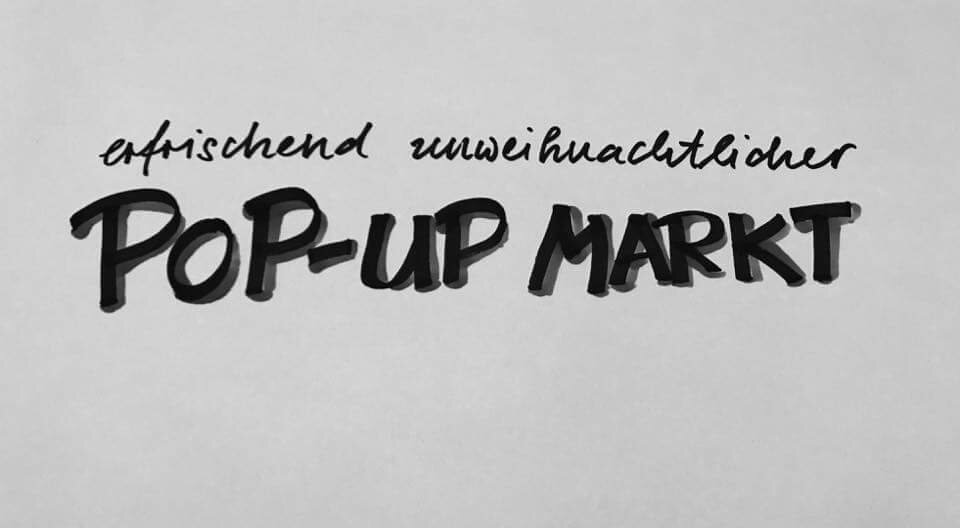 erfrischend unweihnachtlicher
POP-UP MARKT